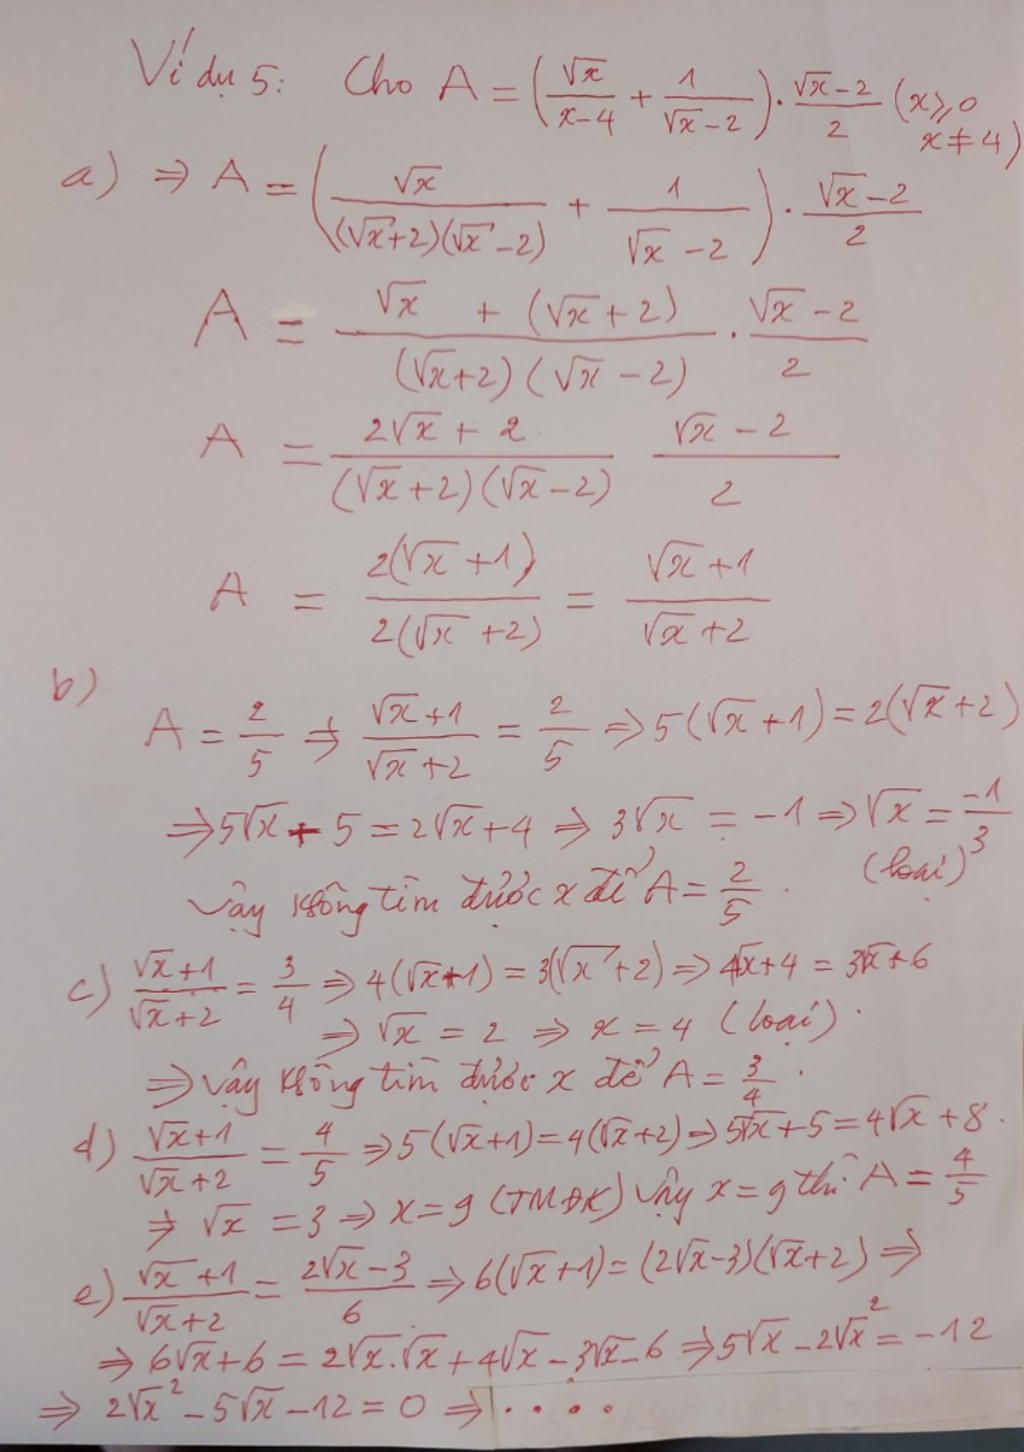 Ví dụ 5: Cho A = (√x/(x-4) + 1/(√x-2)) · (√x-2)/2 (x ⩾ 0
x ≠ 4)
a) ⇒ A = (√x/((√x+2)(√x-2)) + 1/(√x-2)) · (√x-2)/2
A = (√x + (√x+2))/((√x+2)(√x-2)) · (√x-2)/2
A = (2√x+2)/((√x+2)(√x-2)) (√x-2)/2
A = 2(√x+1)/2(√x+2) = (√x+1)/(√x+2)
b)
A = 2/5 ⇒ (√x+1)/(√x+2) = 2/5 ⇒ 5(√x+1) = 2(√x+2)
⇒ 5√x + 5 = 2√x+4 ⇒ 3√x = -1 ⇒ √x = -1/3
(loại)
Vậy không tìm được x để A = 2/5 .
c) (√x+1)/(√x+2) = 3/4 ⇒ 4(√x+1) = 3(√x+2) ⇒ 4√x+4 = 3√x+6
⇒ √x = 2 ⇒ x = 4 (loại) .
⇒ Vậy không tìm được x để A = 3/4 .
d) (√x+1)/(√x+2) = 4/5 ⇒ 5(√x+1) = 4(√x+2) ⇒ 5√x+5 = 4√x+8 .
⇒ √x = 3 ⇒ x = 9 (TMĐK) Vậy x = 9 thì A = 4/5
e) (√x+1)/(√x+2) = (2√x-3)/6 ⇒ 6(√x+1) = (2√x-3)(√x+2) ⇒
⇒ 6√x+6 = 2√x.√x + 4√x - 3√x - 6 ⇒ 5√x - 2√x² = -12
⇒ 2√x² - 5√x - 12 = 0 ⇒ . . . .